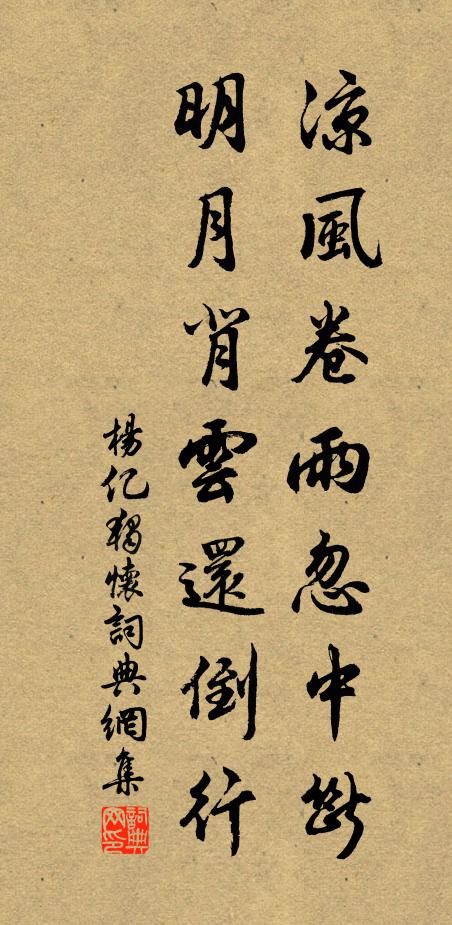 涼風卷雨忽中斷
明月背雲還倒行
楊億獨懷詞典網集
詞典
網印